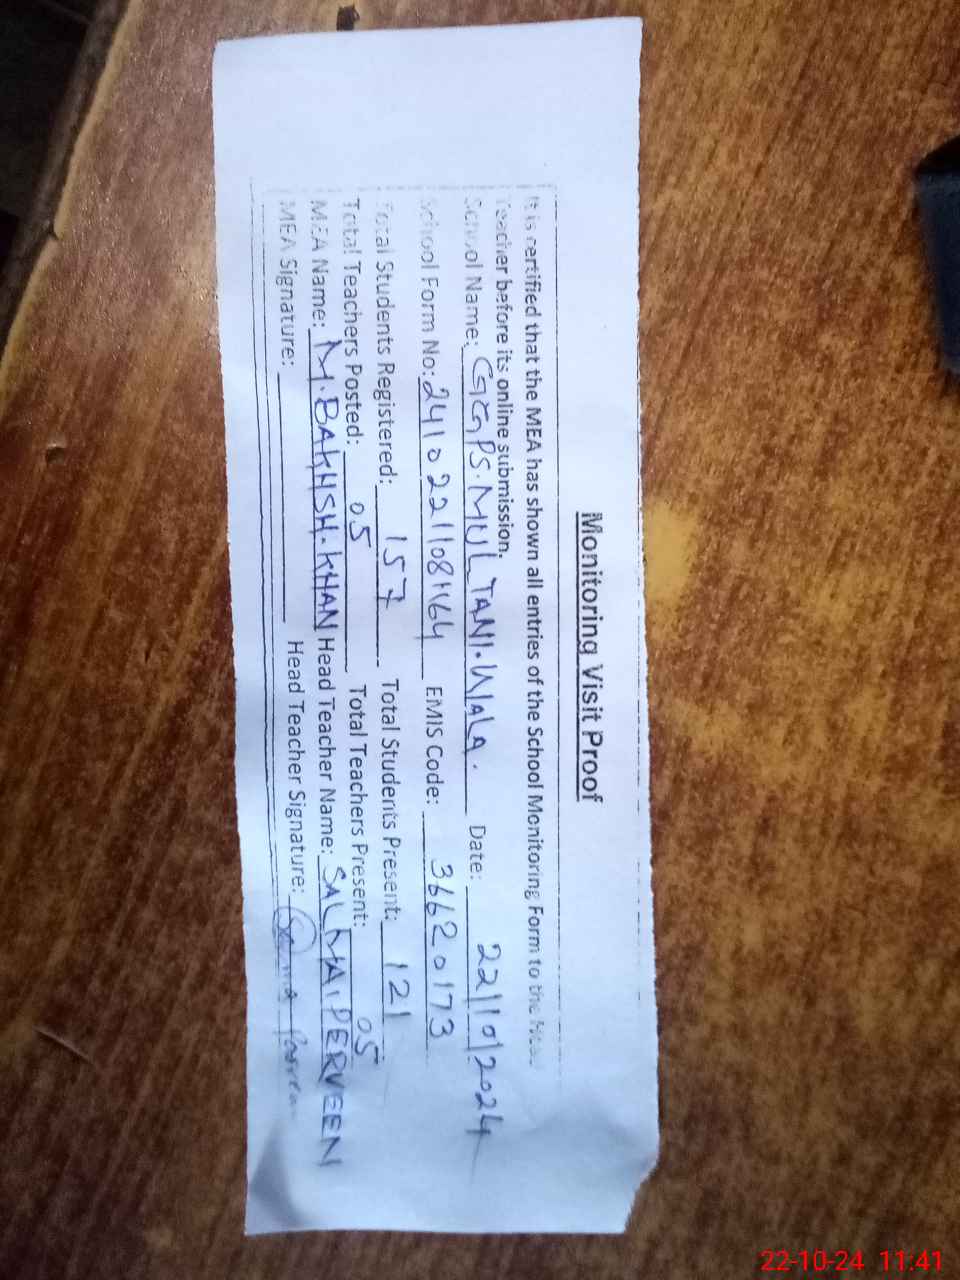 Monitoring Visit Proof
It is certified that the MEA has shown all entries of the School Monitoring Form to the Head
Teacher before its online submission.
School Name: GGPS.MULTANI.WALA. Date: 22/10/2024
School Form No: 24102211084164 EMIS Code: 36620173
Total Students Registered: 157 Total Students Present: 121
Total Teachers Posted: 05 Total Teachers Present: 05
MEA Name: M.BAKHSH.KHAN Head Teacher Name: SALMA PERVEEN
MEA Signature: Head Teacher Signature:
22-10-24 11:41